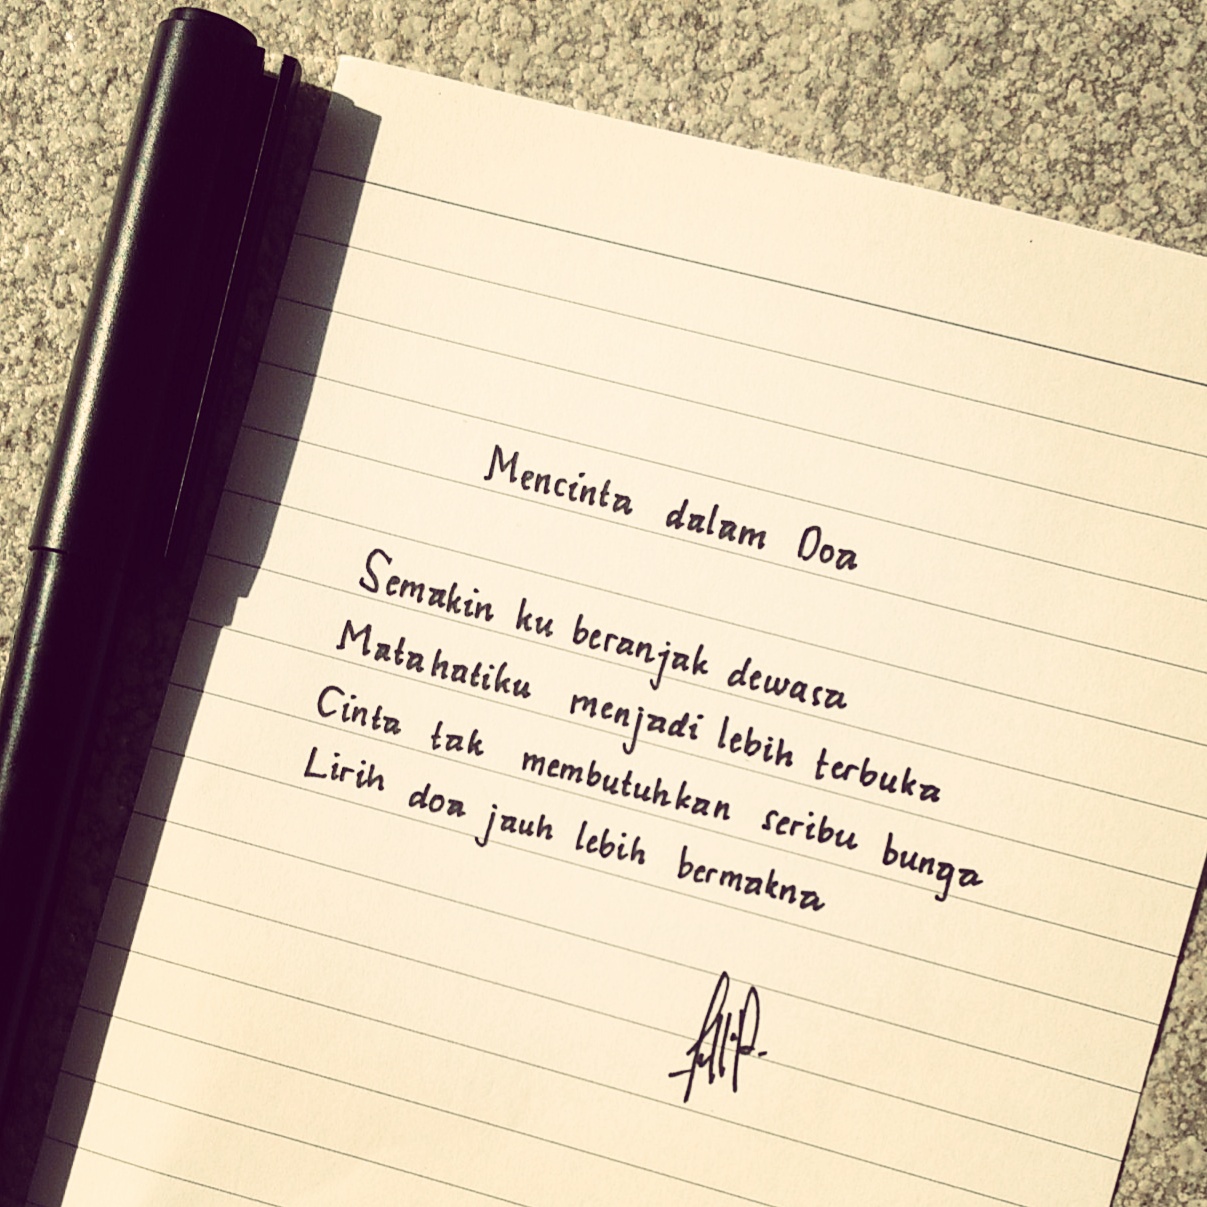 Mencinta dalam Doa
Semakin ku beranjak dewasa
Matahatiku menjadi lebih terbuka
Cinta tak membutuhkan seribu bunga
Lirih doa jauh lebih bermakna